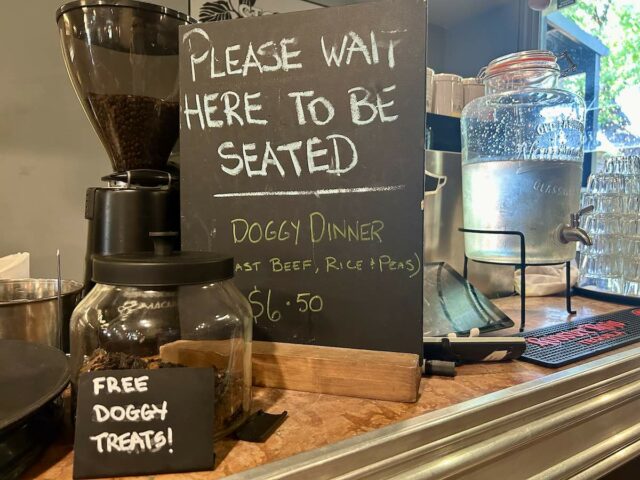 PLEASE WAIT
HERE TO BE
SEATED
DOGGY DINNER
AST BEEF, RICE & PEAS)
$6.50
FREE
DOGGY
TREATS!